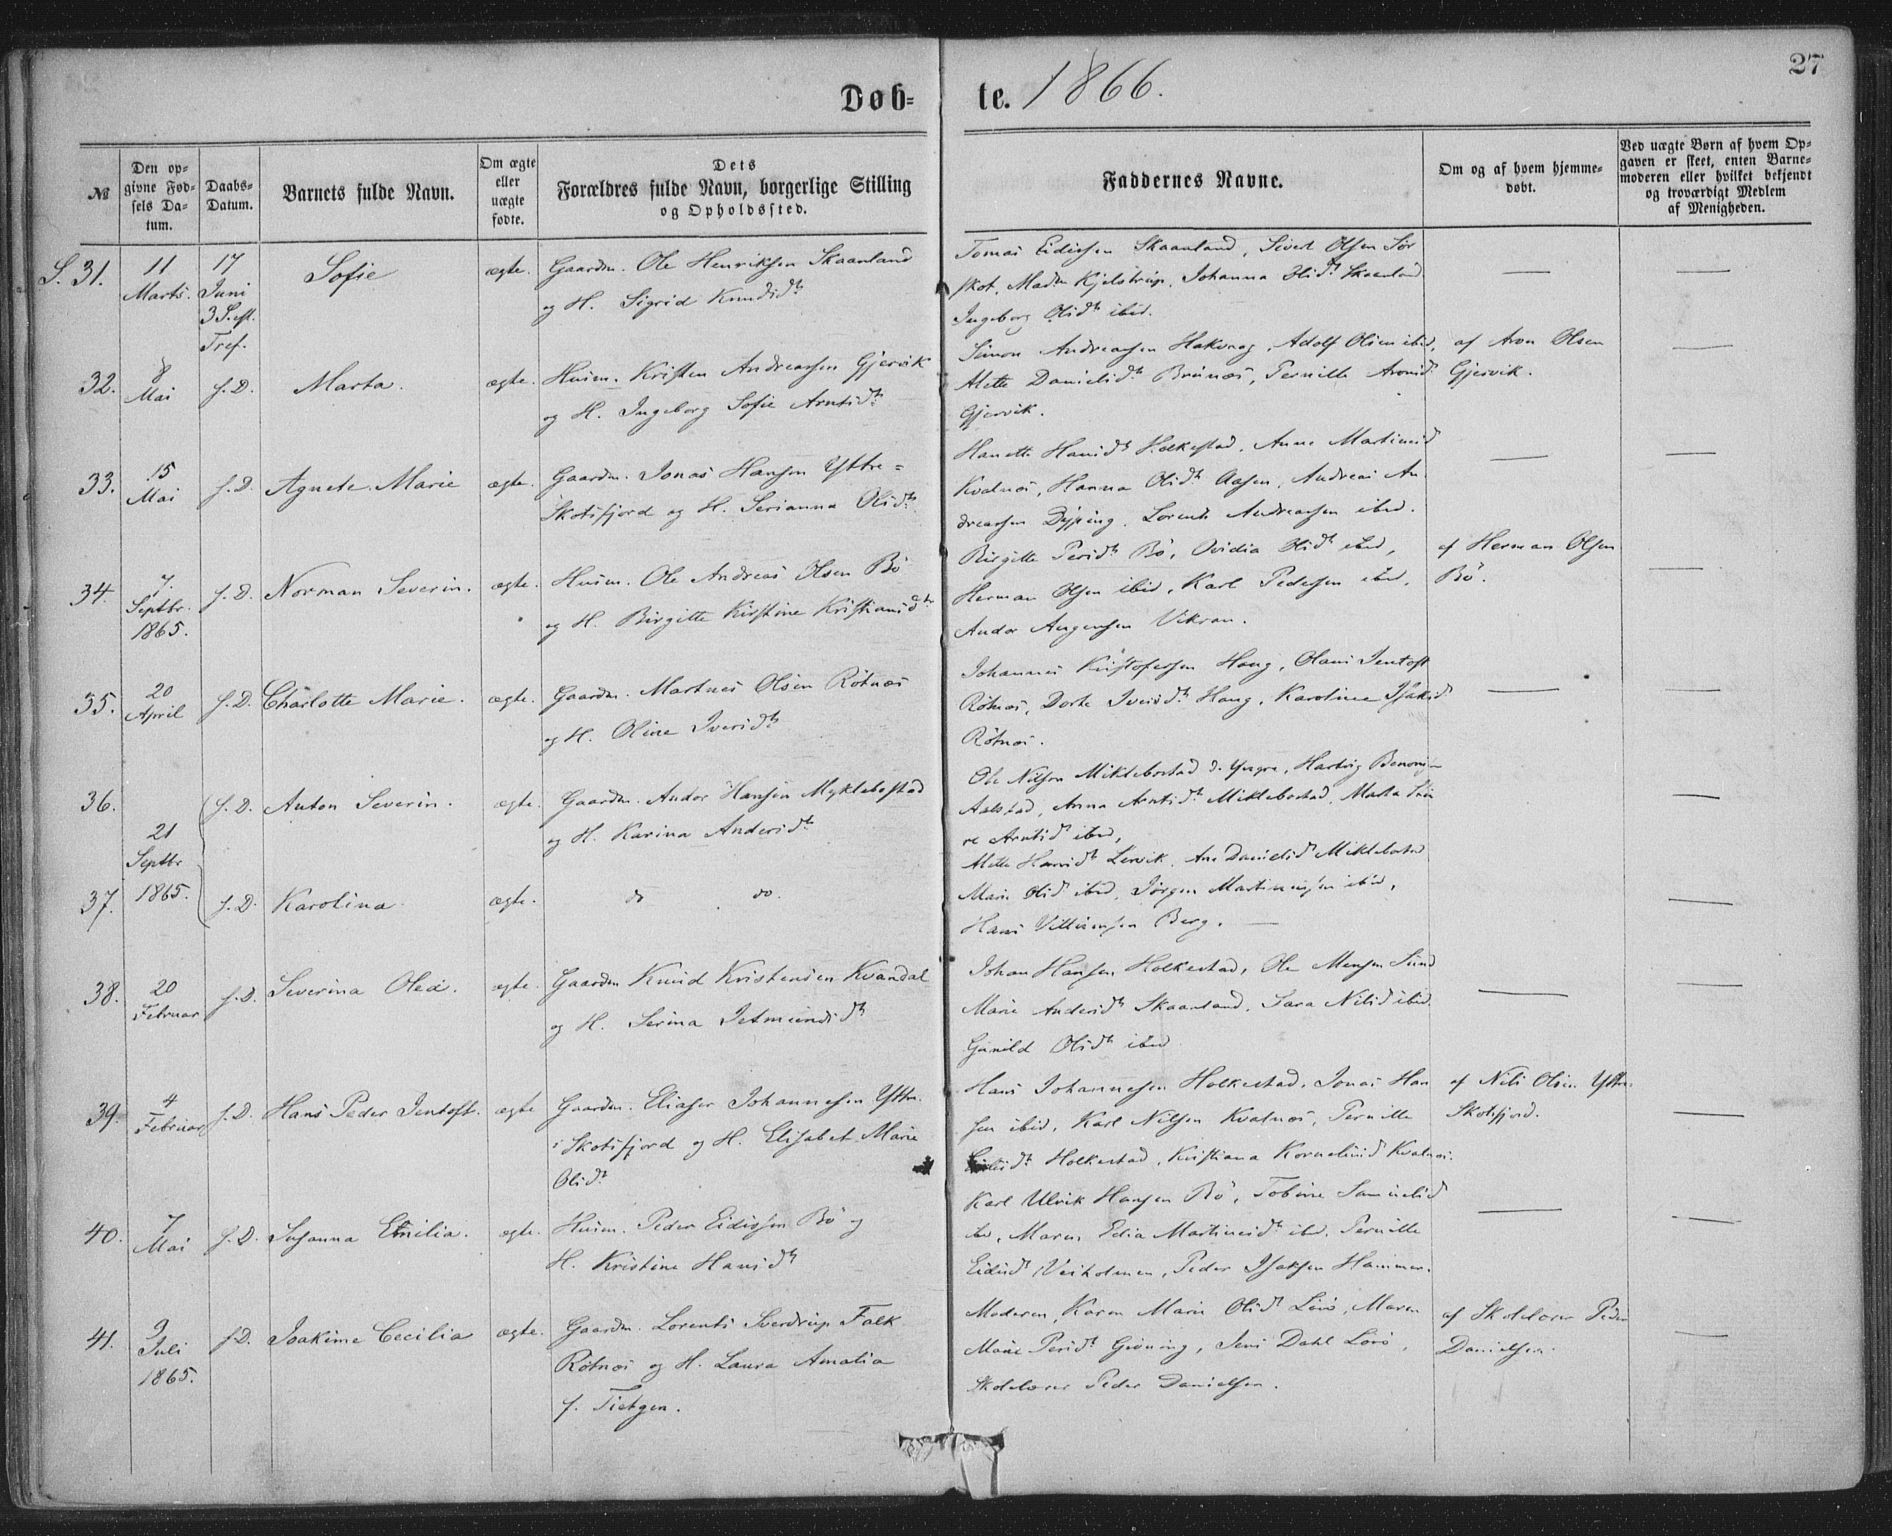 27
Døb- te. 1866.
№
Den op-
givne Fød-
sels Da-
tum.
Daabs-
Datum.
Barnets fulde Navn.
Om ægte
eller
uægte
fødte.
Dets
Forældres fulde Navn, borgerlige Stilling
og Opholdssted.
Faddernes Navne.
Om og af hvem hjemme-
døbt.
Ved uægte Børn af hvem Op-
gaven er skeet, enten Barne-
moderen eller hvilket bekjendt
og troværdigt Medlem
af Menigheden.
S. 31.
11
Marts.
17
Juni
3 S. eft.
Tref.
Sofie
ægte.
Gaardm. Ole Henriksen Skaanland
og H. Sigrid Knudsdt
Tomas Eidissen Skaanland, Sivert Olsen Sør
skot, Kjelstrup, Johanna Olisdt Skaanland
Ingeborg Olisdt ibid.
32.
8
Mai
s. D.
Marta.
ægte.
Husm. Kristen Andreassen Gjervik
og H. Ingeborg Sofie Arntsdt
Simon Andreassen Hakvaag, Adolf Olsen ibid,
Alette Danielsdt Brunæs, Pernille Aronsd
Gjervik.
af Aron Olsen
Gjervik.
33.
15
Mai
s. D.
Agnete Marie
ægte.
Gaardm. Jonas Hansen Yttre-
Skotsfjord og H. Serianna Olsdt
Hanette Hansdt Holkestad, Anne Martinsd
Kvalnæs, Hanna Olsdt Aasen, Andreas An-
dreassen Dyping. Lorents Andreassen ibid.
34.
7
Septbr.
1865.
s. D.
Norman Severin.
ægte.
Husm. Ole Andreas Olsen Bø
og H. Birgitte Kirstine Kristiansdt
Birgitte Persdt Bø, Ovidia Olsdt ibid,
Herman Olsen ibid, Karl Pedersen ibid,
Andor Angensen Vikran.
af Herman Olsen
Bø.
35.
20
April
s. D.
Charlotte Marie.
ægte.
Gaardm. Martnes Olsen Røtnæs
og H. Oline Iversdt
Johannes Kristofersen Haug, Olaus Jentoft
Røtnæs, Dorte Iversdt Haug, Karoline Isaksd
Røtnæs.
36.
21
Septbr
1865.
s. D.
Anton Severin.
ægte.
Gaardm. Andor Hansen Myklebostad
og H. Karina Andersdt
Ole Nilsen Miklebostad d. Yngre, Hartvig Benonis-
Aalstad, Anna Arntsdt Miklebostad, Marta
re Arntsd ibid,
37.
s. D.
Karolina
ægte.
do do.
Alette Hansdt Lervik, Ane Danielsd Miklebostad
Marie Olsd ibid, Jørgen Martinussen ibid,
Hans Berg.
38.
20
Februar
s. D.
Severina Olea.
ægte.
Gaardm Knud Kristensen Kvandal
og H. Serina Jetmundsdt
Johan Hansen Holkestad, Ole Monsen Sund
Marie Andersdt Skaanland, Sara Nilsd ibid
Gunild Olsdt ibid
39.
4
Februar
s. D.
Hans Peder Jentoft.
ægte
Gaardm. Eliaser Johannesen Yttre-
Skotsfjord og H. Elisabet Marie
Olsdt
Hans Johannesen Holkestad, Jonas Han
sen ibid, Karl Nilsen Kvalnæs, Pernille
Holkestad, Kristiana Korneliusd Kvalnæs.
af Nils Olsen Yttre-
Skotsfjord.
40.
7
Mai
s. D.
Susanna Emilia.
ægte.
Husm. Peder Eidissen Bø og
H. Kristine Hansdt
Karl Ulrik Hansen Bø, Tobine Samuelsd
ibid, Maren Edia Martinsdt ibid, Pernille
Eidisd Veiholmen, Peder Isaksen Hammer.
41.
9
Juli
1865.
s. D.
Joakime Cecilia
ægte.
Gaardm. Lorents Sverdrup Falk
Røtnæs og H. Laura Amalia
f. Tietgen.
Moderen, Karen Marie Olsdt Lørø, Maren
Marie Persdt Givning, Jens Dahl Lørø,
Skolelærer Peder Danielsen.
af Skolelærer Peder
Danielsen.